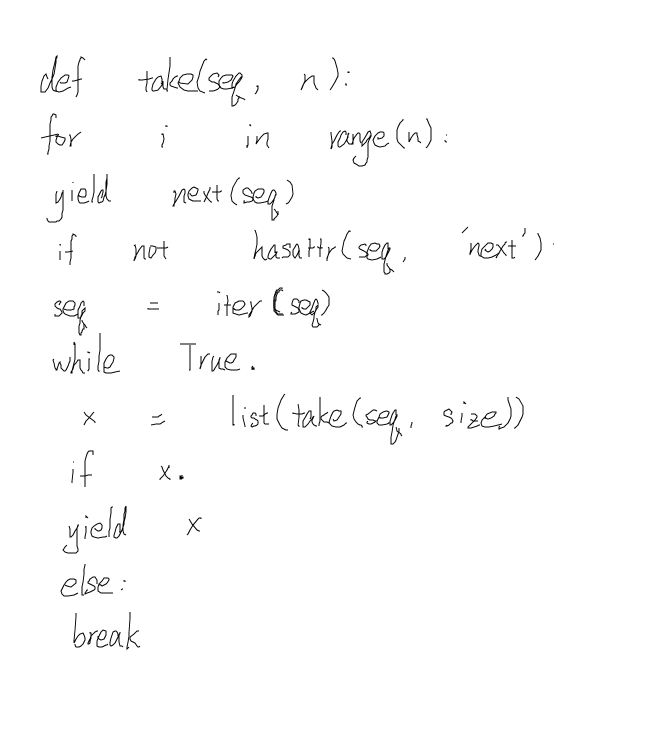 def take(seq, n):
for i in range(n):
yield next(seq)
if not hasattr(seq, 'next').
seq = iter(seq)
while True.
x = list(take(seq, size))
if x.
yield x
else:
break